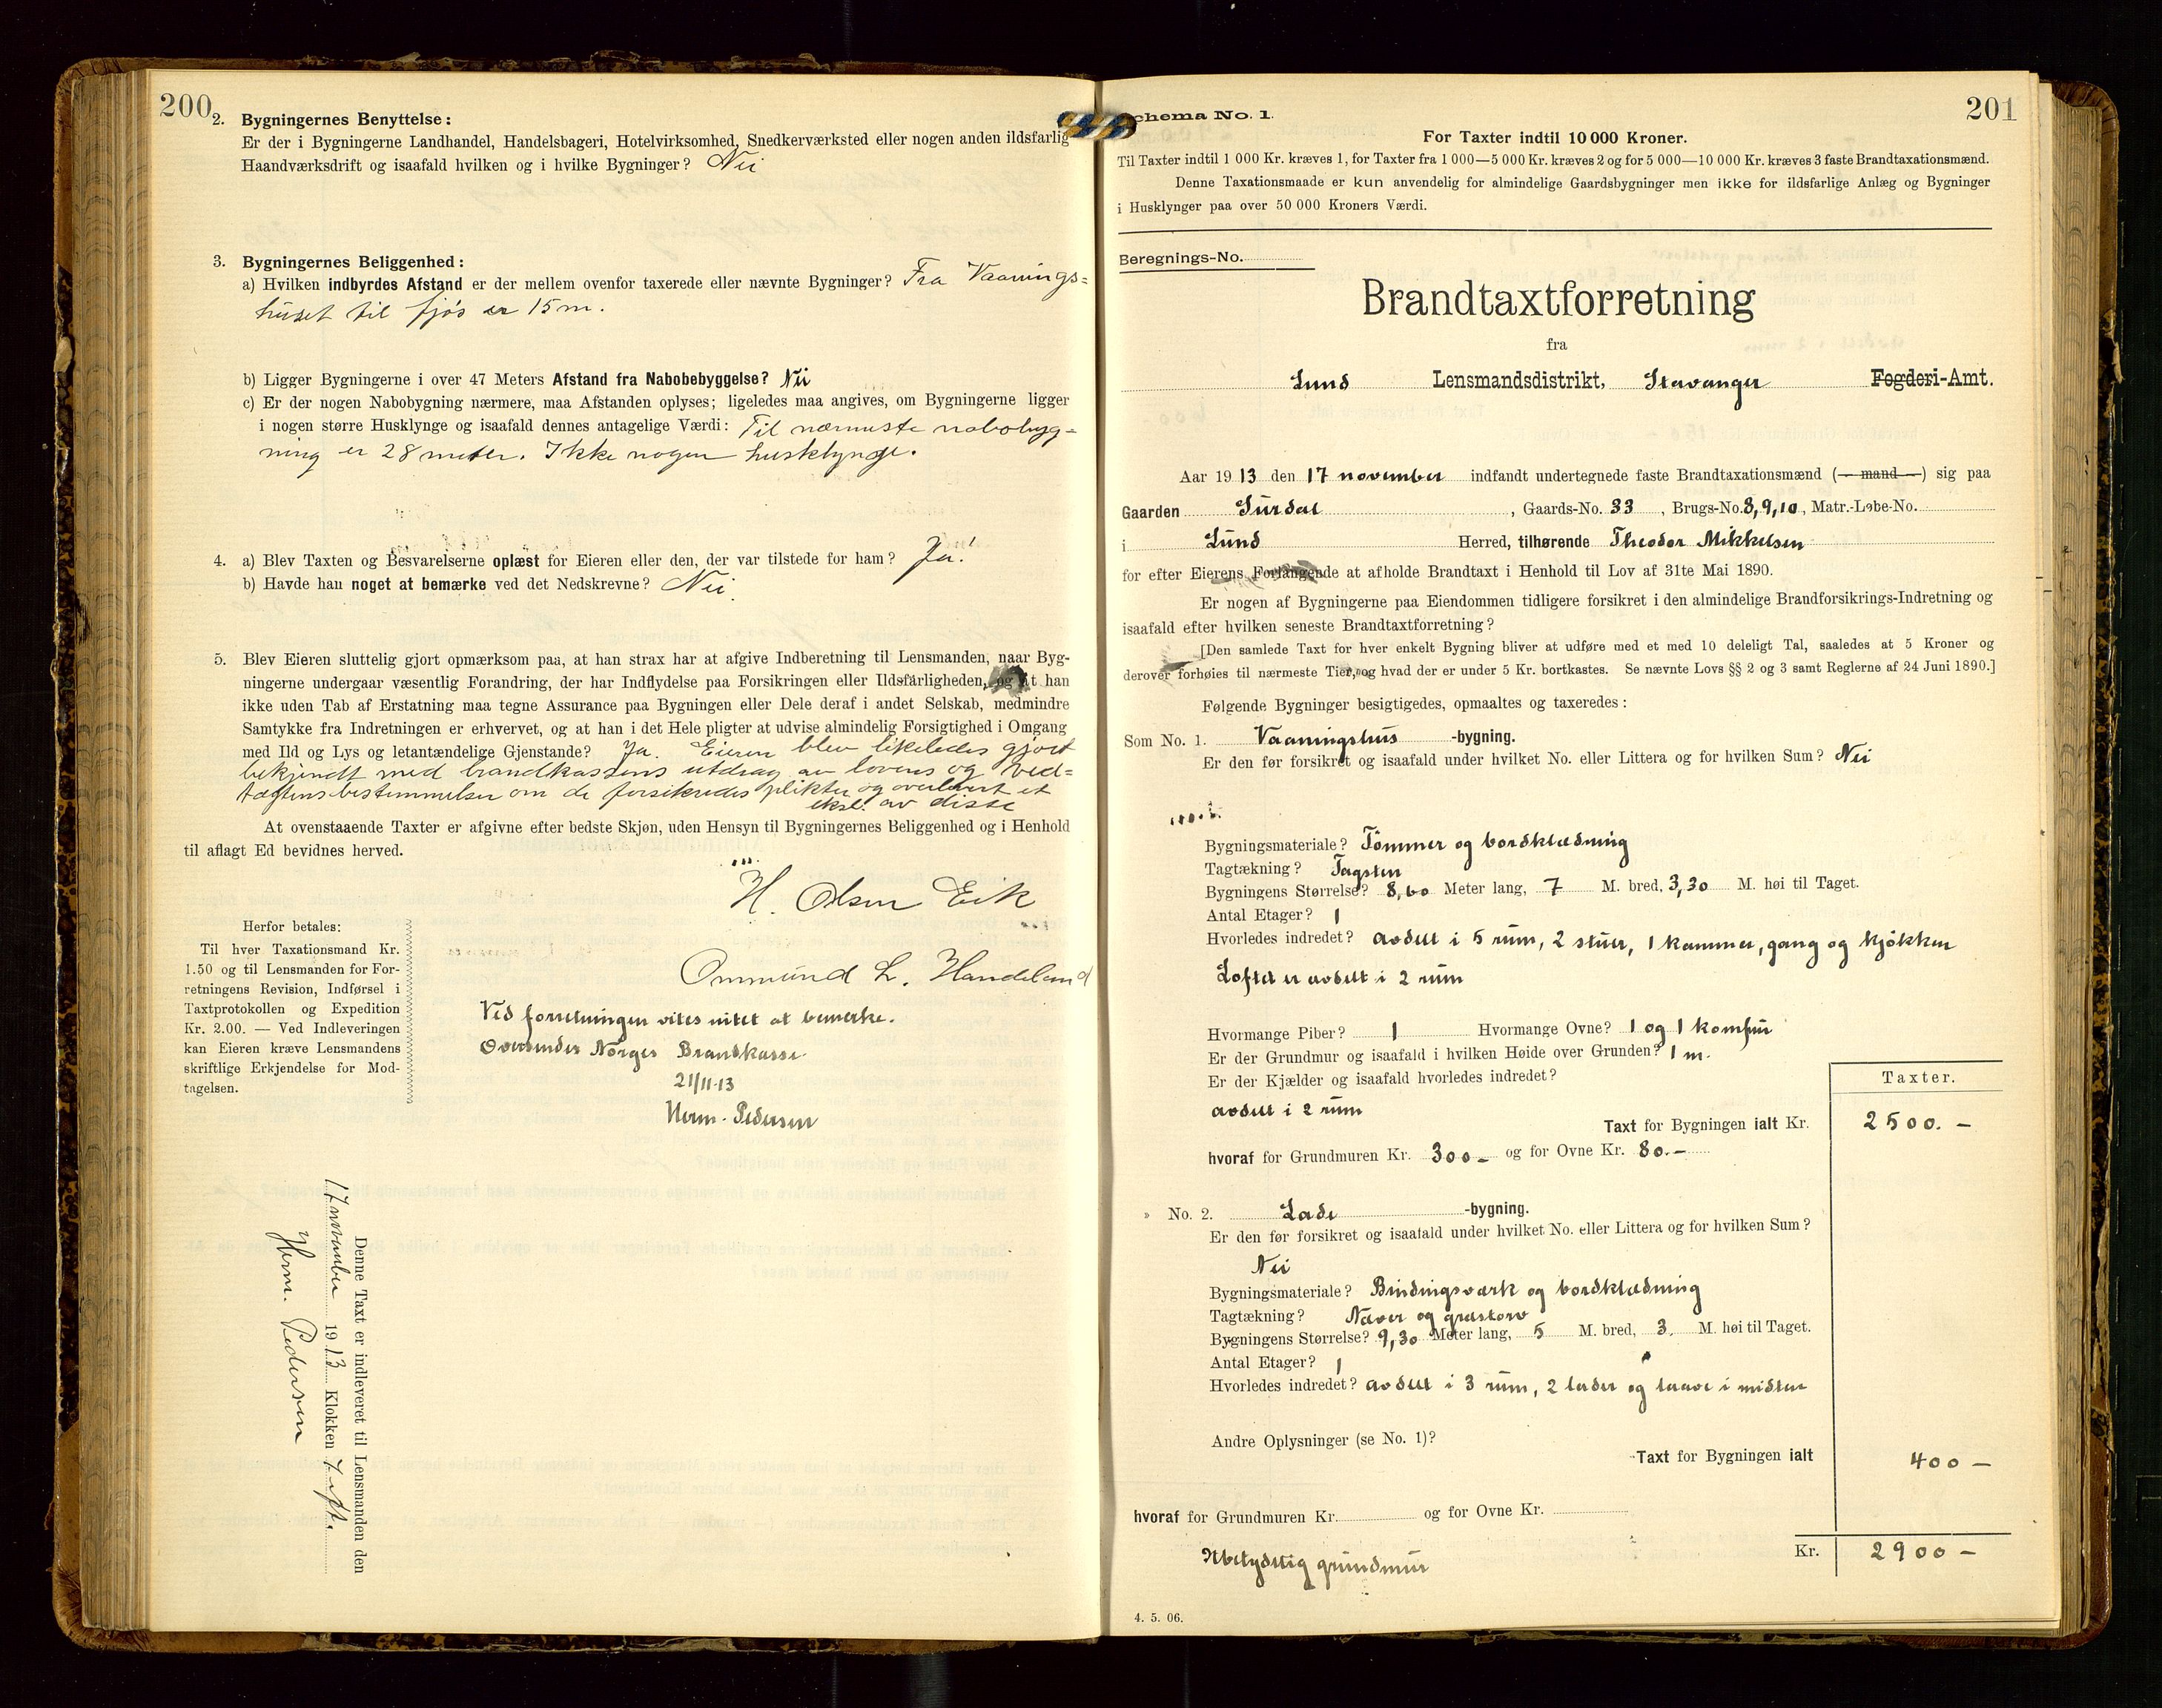 200
2. Bygningernes Benyttelse:
Er der i Bygningerne Landhandel, Handelsbageri, Hotelvirksomhed, Snedkerværksted eller nogen anden ildsfarlig
Haandværksdrift og isaafald hvilken og i hvilke Bygninger? Nei
3. Bygningernes Beliggenhed:
a) Hvilken indbyrdes Afstand er der mellem ovenfor taxerede eller nævnte Bygninger? Fra Vaanings=
huset til fjös er 15 m.
b) Ligger Bygningerne i over 47 Meters Afstand fra Nabobebyggelse? Nei
c) Er der nogen Nabobygning nærmere, maa Afstanden oplyses; ligeledes maa angives, om Bygningerne ligger
i nogen større Husklynge og isaafald dennes antagelige Værdi: Til nærmeste nabobyg=
ning er 28 meter. Ikke nogen husklynge.
4. a) Blev Taxten og Besvarelserne oplæst for Eieren eller den, der var tilstede for ham? Ja!
b) Havde han noget at bemærke ved det Nedskrevne? Nei.
5. Blev Eieren sluttelig gjort opmærksom paa, at han strax har at afgive Indberetning til Lensmanden, naar Byg-
ningerne undergaar væsentlig Forandring, der har Indflydelse paa Forsikringen eller Ildsfarligheden, og at han
ikke uden Tab af Erstatning maa tegne Assurance paa Bygningen eller Dele deraf i andet Selskab, medmindre
Samtykke fra Indretningen er erhvervet, og at han i det Hele pligter at udvise almindelig Forsigtighed i Omgang
med Ild og Lys og letantændelige Gjenstande? Ja. Eieren blev likeledes gjort
bekjendt med brandkassens utdrag av lovens og ved=
tægtens bestemmelser om de forsikredes plikter og overlevert et
eksl. av disse
At ovenstaaende Taxter er afgivne efter bedste Skjøn, uden Hensyn til Bygningernes Beliggenhed og i Henhold
til aflagt Ed bevidnes herved.
H. Olsen Eik
Ommund L. Handeland
Herfor betales:
Til hver Taxationsmand Kr.
1.50 og til Lensmanden for For-
retningens Revision, Indførsel i
Taxtprotokollen og Expedition
Kr. 2.00. — Ved Indleveringen
kan Eieren kræve Lensmandens
skriftlige Erkjendelse for Mod-
tagelsen.
Ved forretningen vites intet at bemerke.
Oversendes Norges Brandkasse
21/11-13
Herm. Pedersen
Denne Taxt er indleveret til Lensmanden den
17 november 1913 Klokken 7 eft.
Herm. Pedersen
201
chema No. 1.
For Taxter indtil 10 000 Kroner.
Til Taxter indtil 1 000 Kr. kræves 1, for Taxter fra 1 000—5 000 Kr. kræves 2 og for 5 000—10 000 Kr. kræves 3 faste Brandtaxationsmænd.
Denne Taxationsmaade er kun anvendelig for almindelige Gaardsbygninger men ikke for ildsfarlige Anlæg og Bygninger
i Husklynger paa over 50 000 Kroners Værdi.
Beregnings-No.
Brandtaxtforretning
fra
Lund Lensmandsdistrikt, Stavanger Fogderi-Amt.
Aar 1913 den 17 november indfandt undertegnede faste Brandtaxationsmænd (— mand —) sig paa
Gaarden Surdal, Gaards-No. 33, Brugs-No. 8,9,10, Matr.-Løbe-No.
i Lund Herred, tilhørende Theodor Mikkelsen
for efter Eierens Forlangende at afholde Brandtaxt i Henhold til Lov af 31te Mai 1890.
Er nogen af Bygningerne paa Eiendommen tidligere forsikret i den almindelige Brandforsikrings-Indretning og
isaafald efter hvilken seneste Brandtaxtforretning?
[Den samlede Taxt for hver enkelt Bygning bliver at udføre med et med 10 deleligt Tal, saaledes at 5 Kroner og
derover forhøies til nærmeste Tier, og hvad der er under 5 Kr. bortkastes. Se nævnte Lovs §§ 2 og 3 samt Reglerne af 24 Juni 1890.]
Følgende Bygninger besigtigedes, opmaaltes og taxeredes:
Som No. 1. Vaaningshus -bygning.
Er den før forsikret og isaafald under hvilket No. eller Littera og for hvilken Sum? Nei
Bygningsmateriale? Tömmer og bordklædning
Tagtækning? Tagsten
Bygningens Størrelse? 8,60 Meter lang, 7 M. bred, 3,30 M. høi til Taget.
Antal Etager? 1
Hvorledes indredet? avdelt i 5 rum, 2 stuer, 1 kammer, gang og kjökken
Loftet er avdelt i 2 rum
Hvormange Piber? 1 Hvormange Ovne? 1 og 1 komfur
Er der Grundmur og isaafald i hvilken Høide over Grunden? 1 m.
Er der Kjælder og isaafald hvorledes indredet?
avdelt i 2 rum
Taxter.
Taxt for Bygningen ialt Kr. 2500.—
hvoraf for Grundmuren Kr. 300.— og for Ovne Kr. 80.—
» No. 2. Lade -bygning.
Er den før forsikret og isaafald under hvilket No. eller Littera og for hvilken Sum?
Nei
Bygningsmateriale? Bindingsværk og bordklædning
Tagtækning? Næver og græstorv
Bygningens Størrelse? 9,30 Meter lang, 5 M. bred, 3. M. høi til Taget.
Antal Etager? 1
Hvorledes indredet? avdelt i 3 rum, 2 lader og laave i midten
Andre Oplysninger (se No. 1)?
Taxt for Bygningen ialt 400 —
hvoraf for Grundmuren Kr. og for Ovne Kr.
Ubetydelig grundmur
Kr. 2900 —
4. 5. 06.